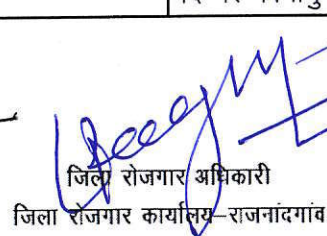 जिला रोजगार अधिकारी
जिला रोजगार कार्यालय–राजनांदगांव